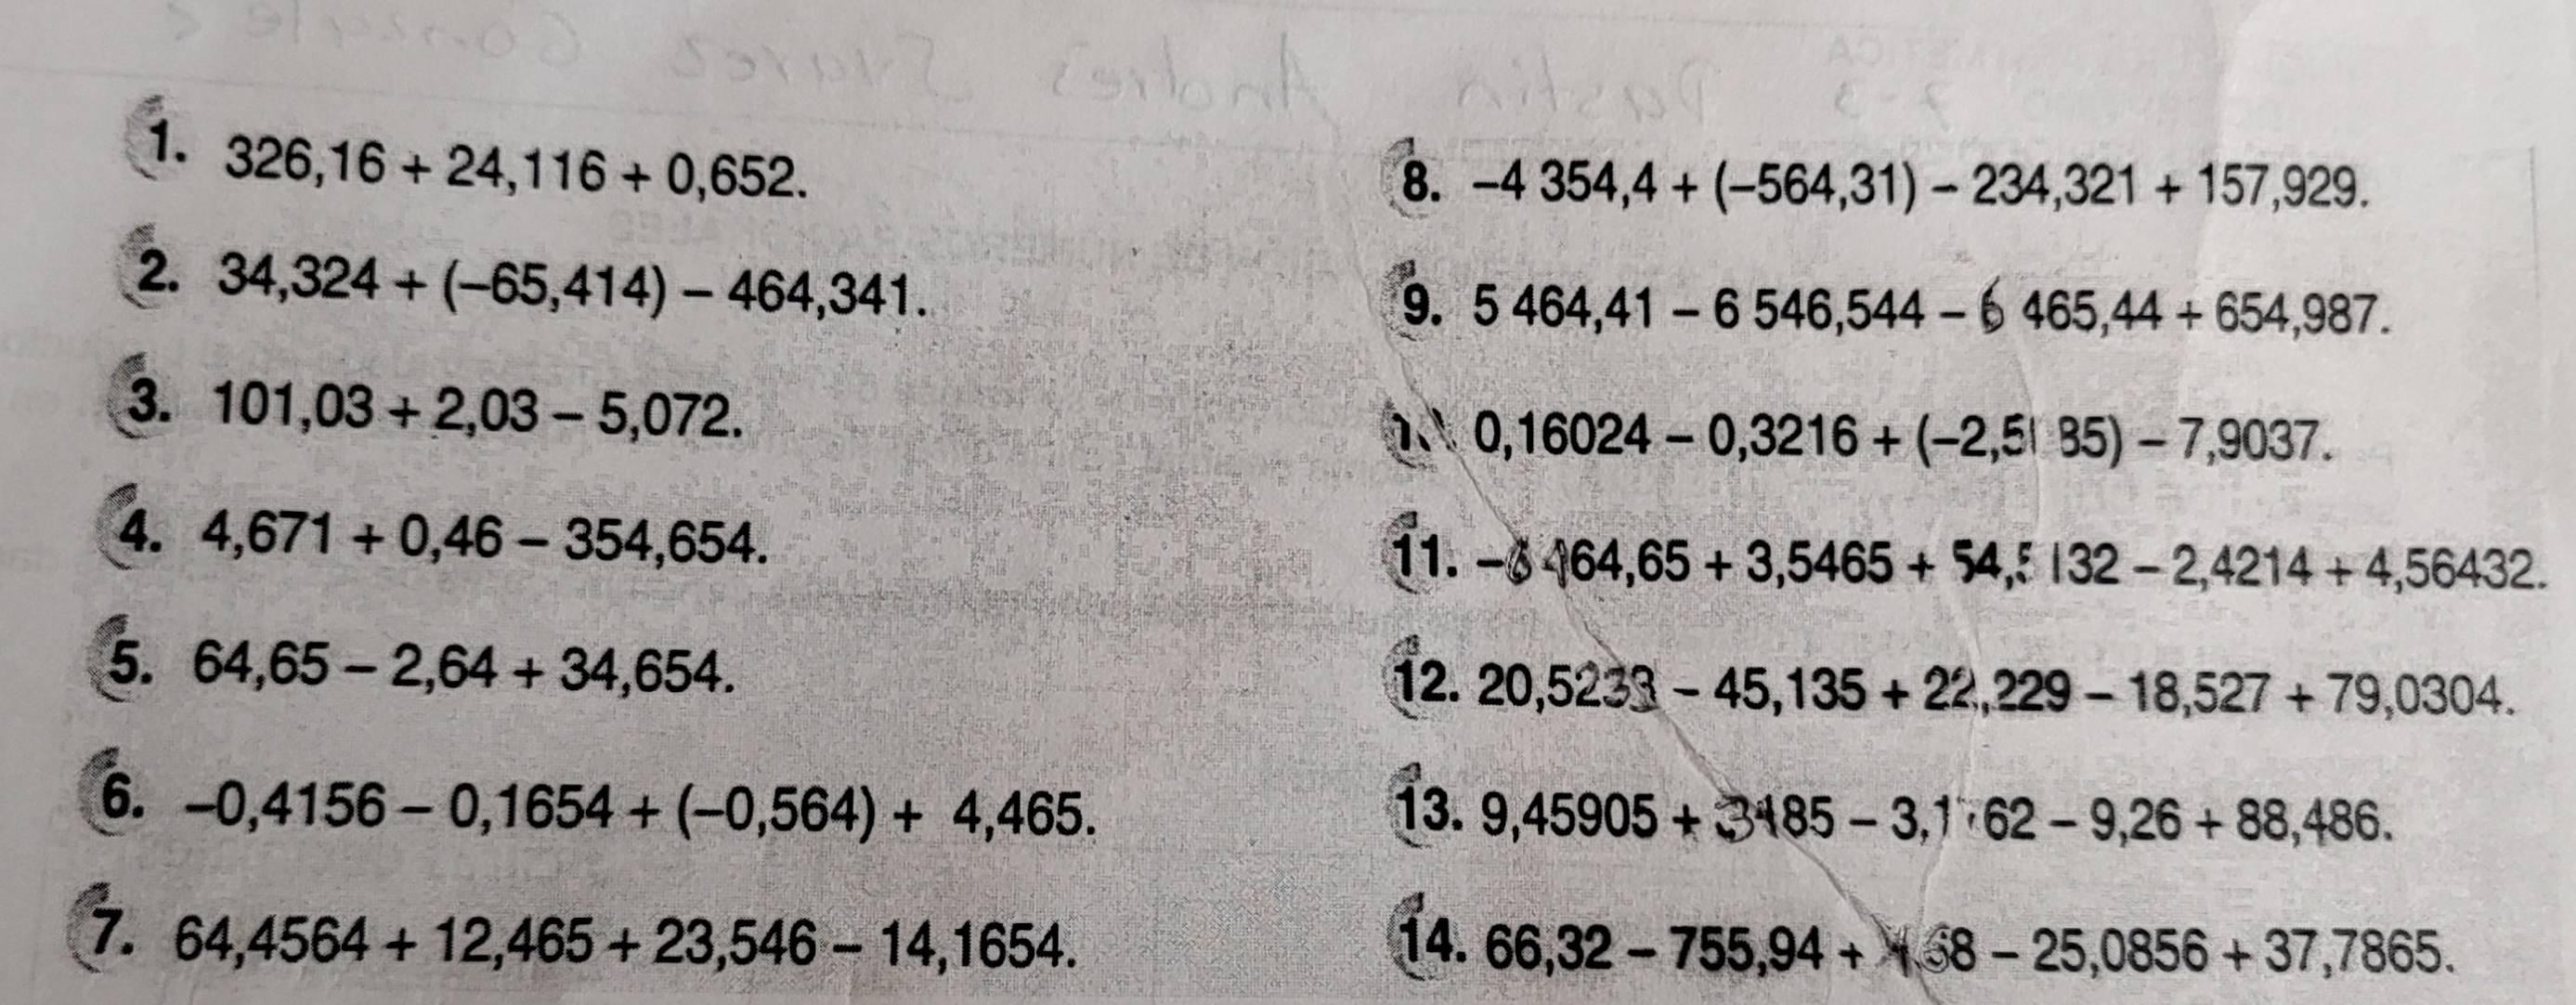 1. 326,16 + 24,116 + 0,652.
2. 34,324 + (–65,414) – 464,341.
3. 101,03 + 2,03 – 5,072.
4. 4,671 + 0,46 – 354,654.
5. 64,65 – 2,64 + 34,654.
6. –0,4156 – 0,1654 + (–0,564) + 4,465.
7. 64,4564 + 12,465 + 23,546 – 14,1654.
8. –4 354,4 + (–564,31) – 234,321 + 157,929.
9. 5 464,41 – 6 546,544 – 6 465,44 + 654,987.
0,16024 – 0,3216 + (– – 7,9037.
11. + 3,5465 + – 2,4214 + 4,56432.
12. 20,5233 – 45,135 + 22,229 – 18,527 + 79,0304.
13. 9,45905 + – – 9,26 + 88,486.
14. 66,32 – 755,94 + – 25,0856 + 37,7865.